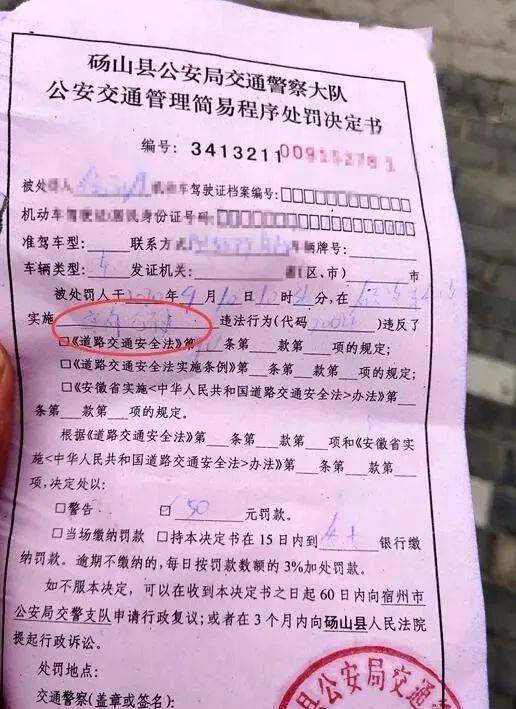 砀山县公安局交通警察大队
公安交通管理简易程序处罚决定书
编号：3413211 009152781
被处罚人 机动车驾驶证档案编号：□□□□□□□□□□□□
机动车驾驶证/居民身份证号码
准驾车型： 联系方式 车辆牌号：
车辆类型： 发证机关： 省(区、市) 市
被处罚人于 年9月10日10时 分，在
实施 违法行为(代码 )违反了
□《道路交通安全法》第 条第 款第 项的规定；
□《道路交通安全法实施条例》第 条第 款第 项的规定；
□《安徽省实施<中华人民共和国道路交通安全法>办法》第
条第 款第 项的规定。
根据《道路交通安全法》第 条第 款第 项和《安徽省实
施<中华人民共和国道路交通安全法>办法》第 条第 款第
项，决定处以：
□警告 ☑ 50 元罚款。
□当场缴纳罚款 □持本决定书在15日内到 银行缴
纳罚款。逾期不缴纳的，每日按罚款数额的3%加处罚款。
如不服本决定，可以在收到本决定书之日起60日内向宿州市
公安局交警支队申请行政复议；或者在3个月内向砀山县人民法院
提起行政诉讼。
处罚地点：
交通警察(盖章或签名)：
县公安局交通